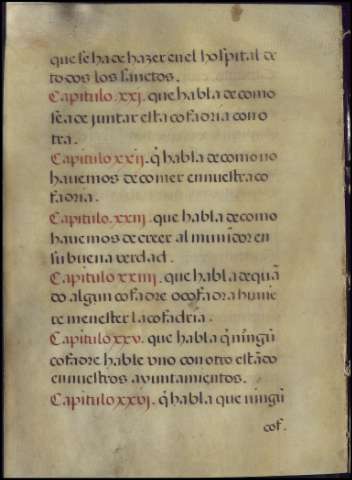 que se ha de hazer en el hospital de
todos los sanctos.
Capitulo.xxi. que habla de como
sea de juntar esta cofadria con o
tra.
Capitulo xxij. q̃ habla de como no
hauemos de comer en nuestra co
fadria.
Capitulo.xxiij. que habla de como
hauemos de creer al muniдor en
su buena verdad.
Capitulo xxiiij. que habla de quã
do algun cofadre o cofadra huuie
re menester la cofadria.
Capitulo xxv. que habla q̃ ningũ
cofadre hable vno con otro estãdo
en nuestros ayuntamientos.
Capitulo xxvj. q̃ habla que ningũ
cof.